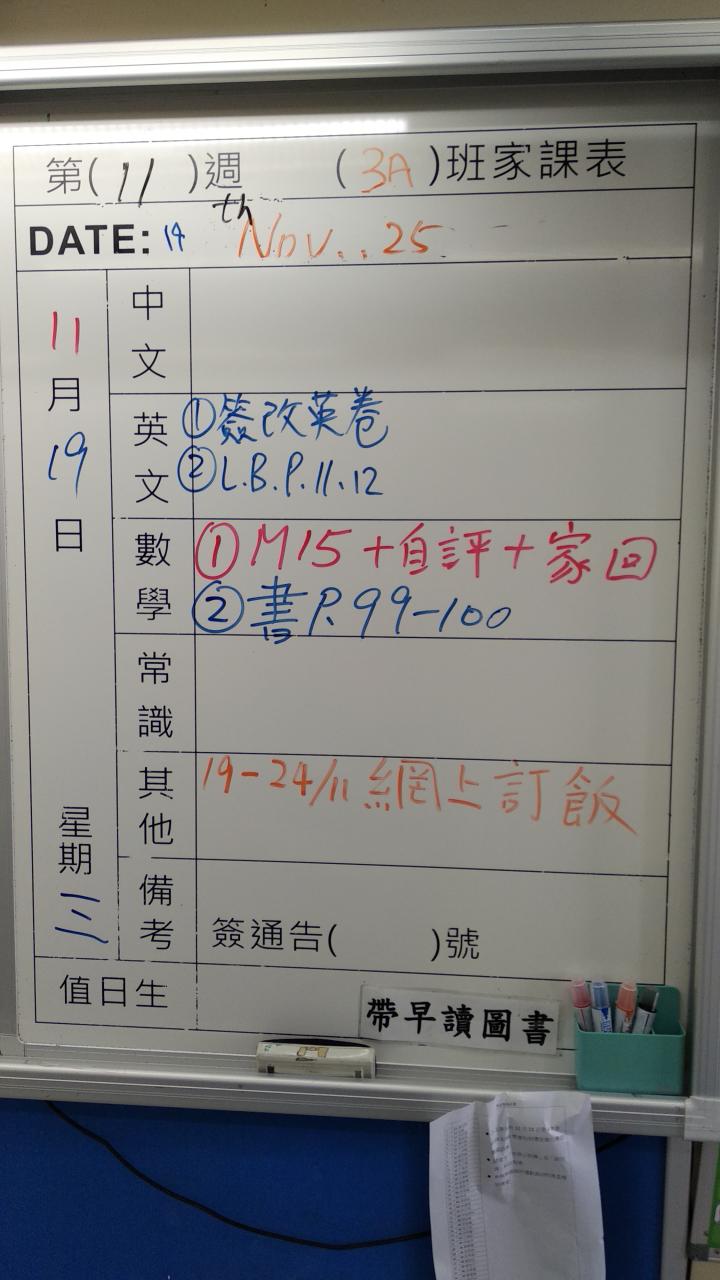 第( 11 )週 ( 3A )班家課表
DATE: 19th Nov..25
11月19日
星期三
中文
英文
①簽改英卷
②L.B.P.11.12
數學
①M15+自評+家回
②書P.99-100
常識
其他
19-24/11 網上訂飯
備考
簽通告( )號
值日生
帶早讀圖書